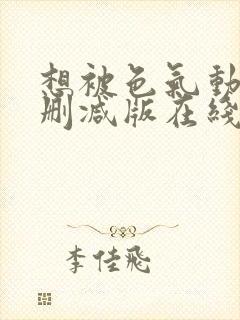 想被色氣動
刪減版在綫
李佳飛